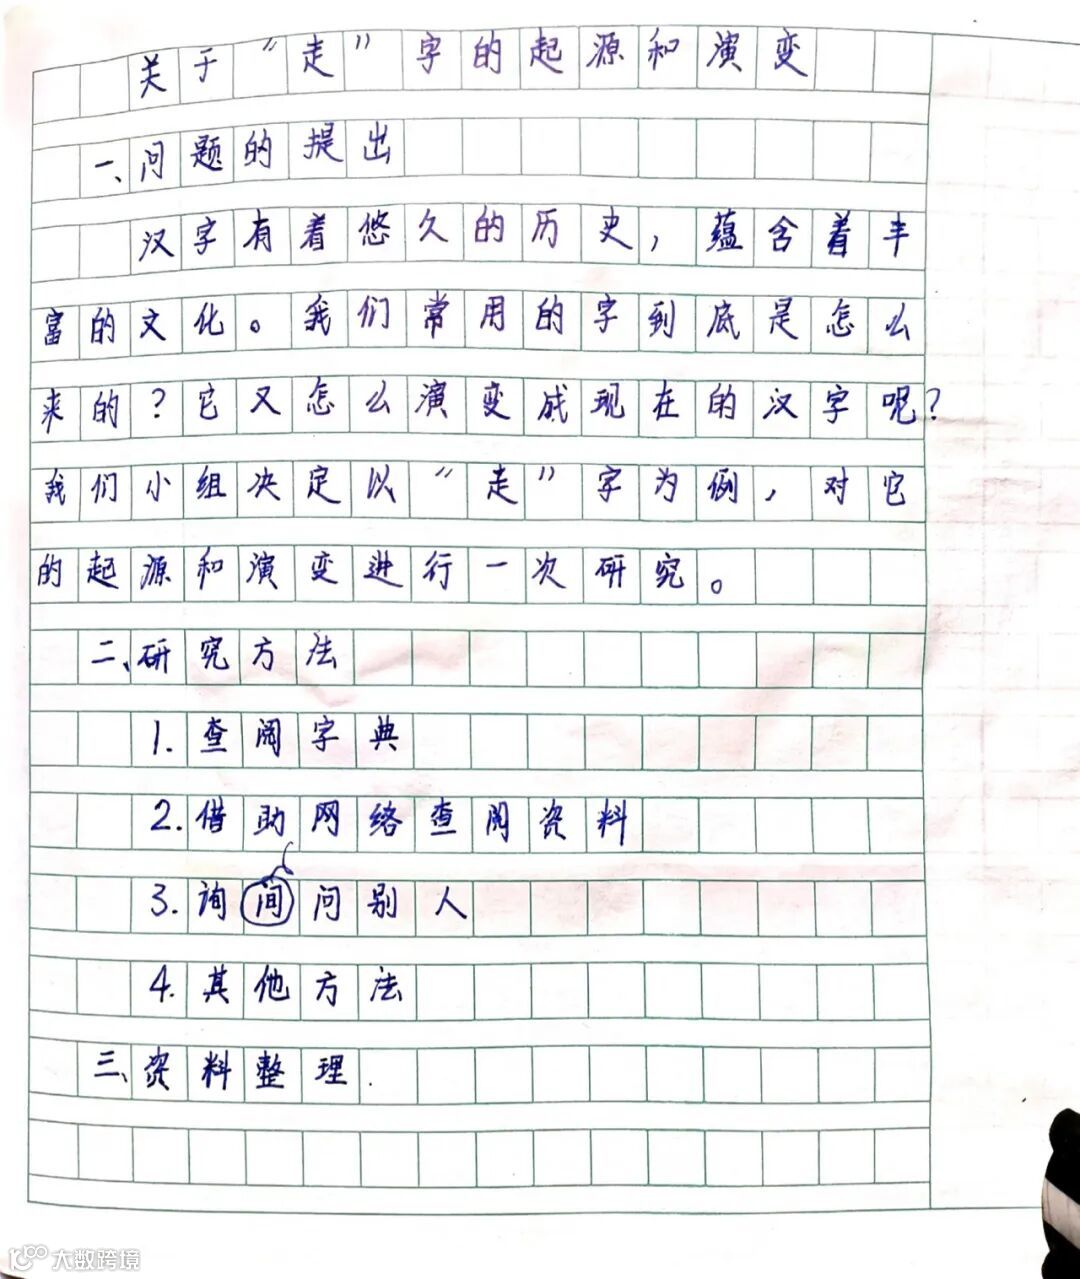 关于“走”字的起源和演变
一、问题的提出
汉字有着悠久的历史，蕴含着丰
富的文化。我们常用的字到底是怎么
来的？它又怎么演变成现在的汉字呢？
我们小组决定以“走”字为例，对它
的起源和演变进行一次研究。
二、研究方法
1.查阅字典
2.借助网络查阅资料
3.询间问别人
4.其他方法
三、资料整理.
大数跨境